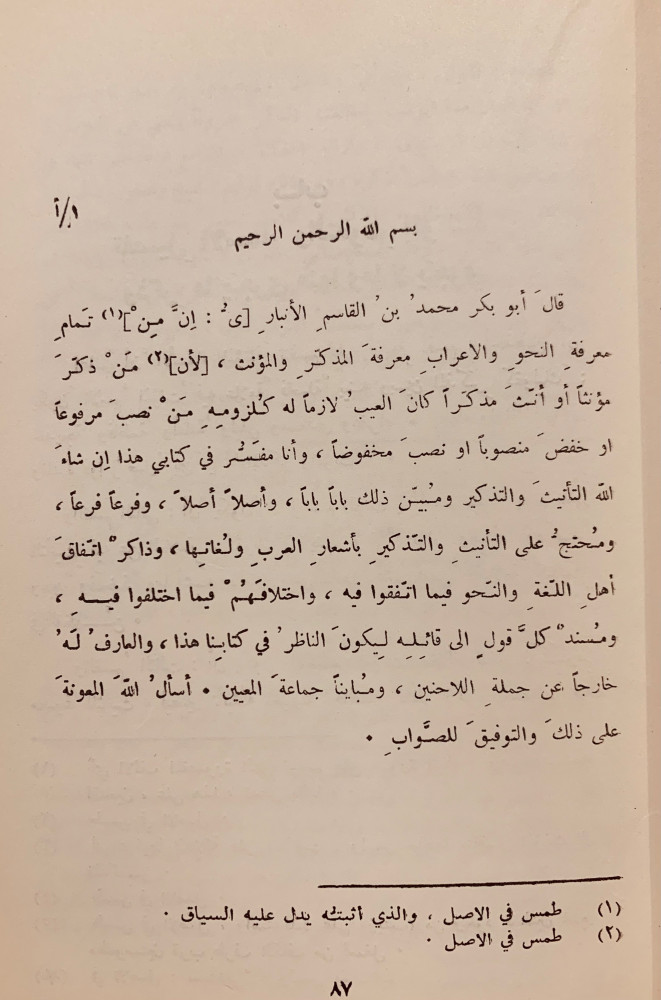 ١/أ
بسم الله الرحمن الرحيم
قالَ أبو بكر محمدُ بنُ القاسمِ الأنبارِ [يُّ : إنَّ مِنْ](١) تَمامِ
معرفةِ النحوِ والاعرابِ معرفةَ المذكّرِ والمؤنث ، [لأن](٢) مَنْ ذكّرَ
مؤنثاً أو أنّثَ مذكّراً كانَ العيبُ لازماً له كلزومِهِ مَنْ نصبَ مرفوعاً
او خفضَ منصوباً او نصبَ مخفوضاً ، وأنا مفسّر في كتابي هذا إن شاءَ
الله التأنيثَ والتذكير ومُبيّن ذلك باباً باباً ، وأصلاً أصلاً ، وفرعاً فرعاً ،
ومُحتجٌّ على التأنيثِ والتّذكيرِ بأشعارِ العربِ ولُغاتِها ، وذاكرٌ اتفاقَ
أهلِ اللّغةِ والنّحو فيما اتّفقوا فيه ، واختلافَهُمْ فيما اختلفوا فيهِ ،
ومُسندٌ كلَّ قولٍ الى قائِلِه لِيكونَ الناظرُ في كتابِنا هذا ، والعارفُ لَهُ
خارجاً عن جملةِ اللاحنين ، ومُبايناً جماعةَ المعيين • أسألُ اللهَ المعونةَ
على ذلكَ والتوفيقَ للصَّوابِ •
(١) طمس في الاصل ، والذي أثبته يدل عليه السياق ٠
(٢) طمس في الاصل ٠
٨٧